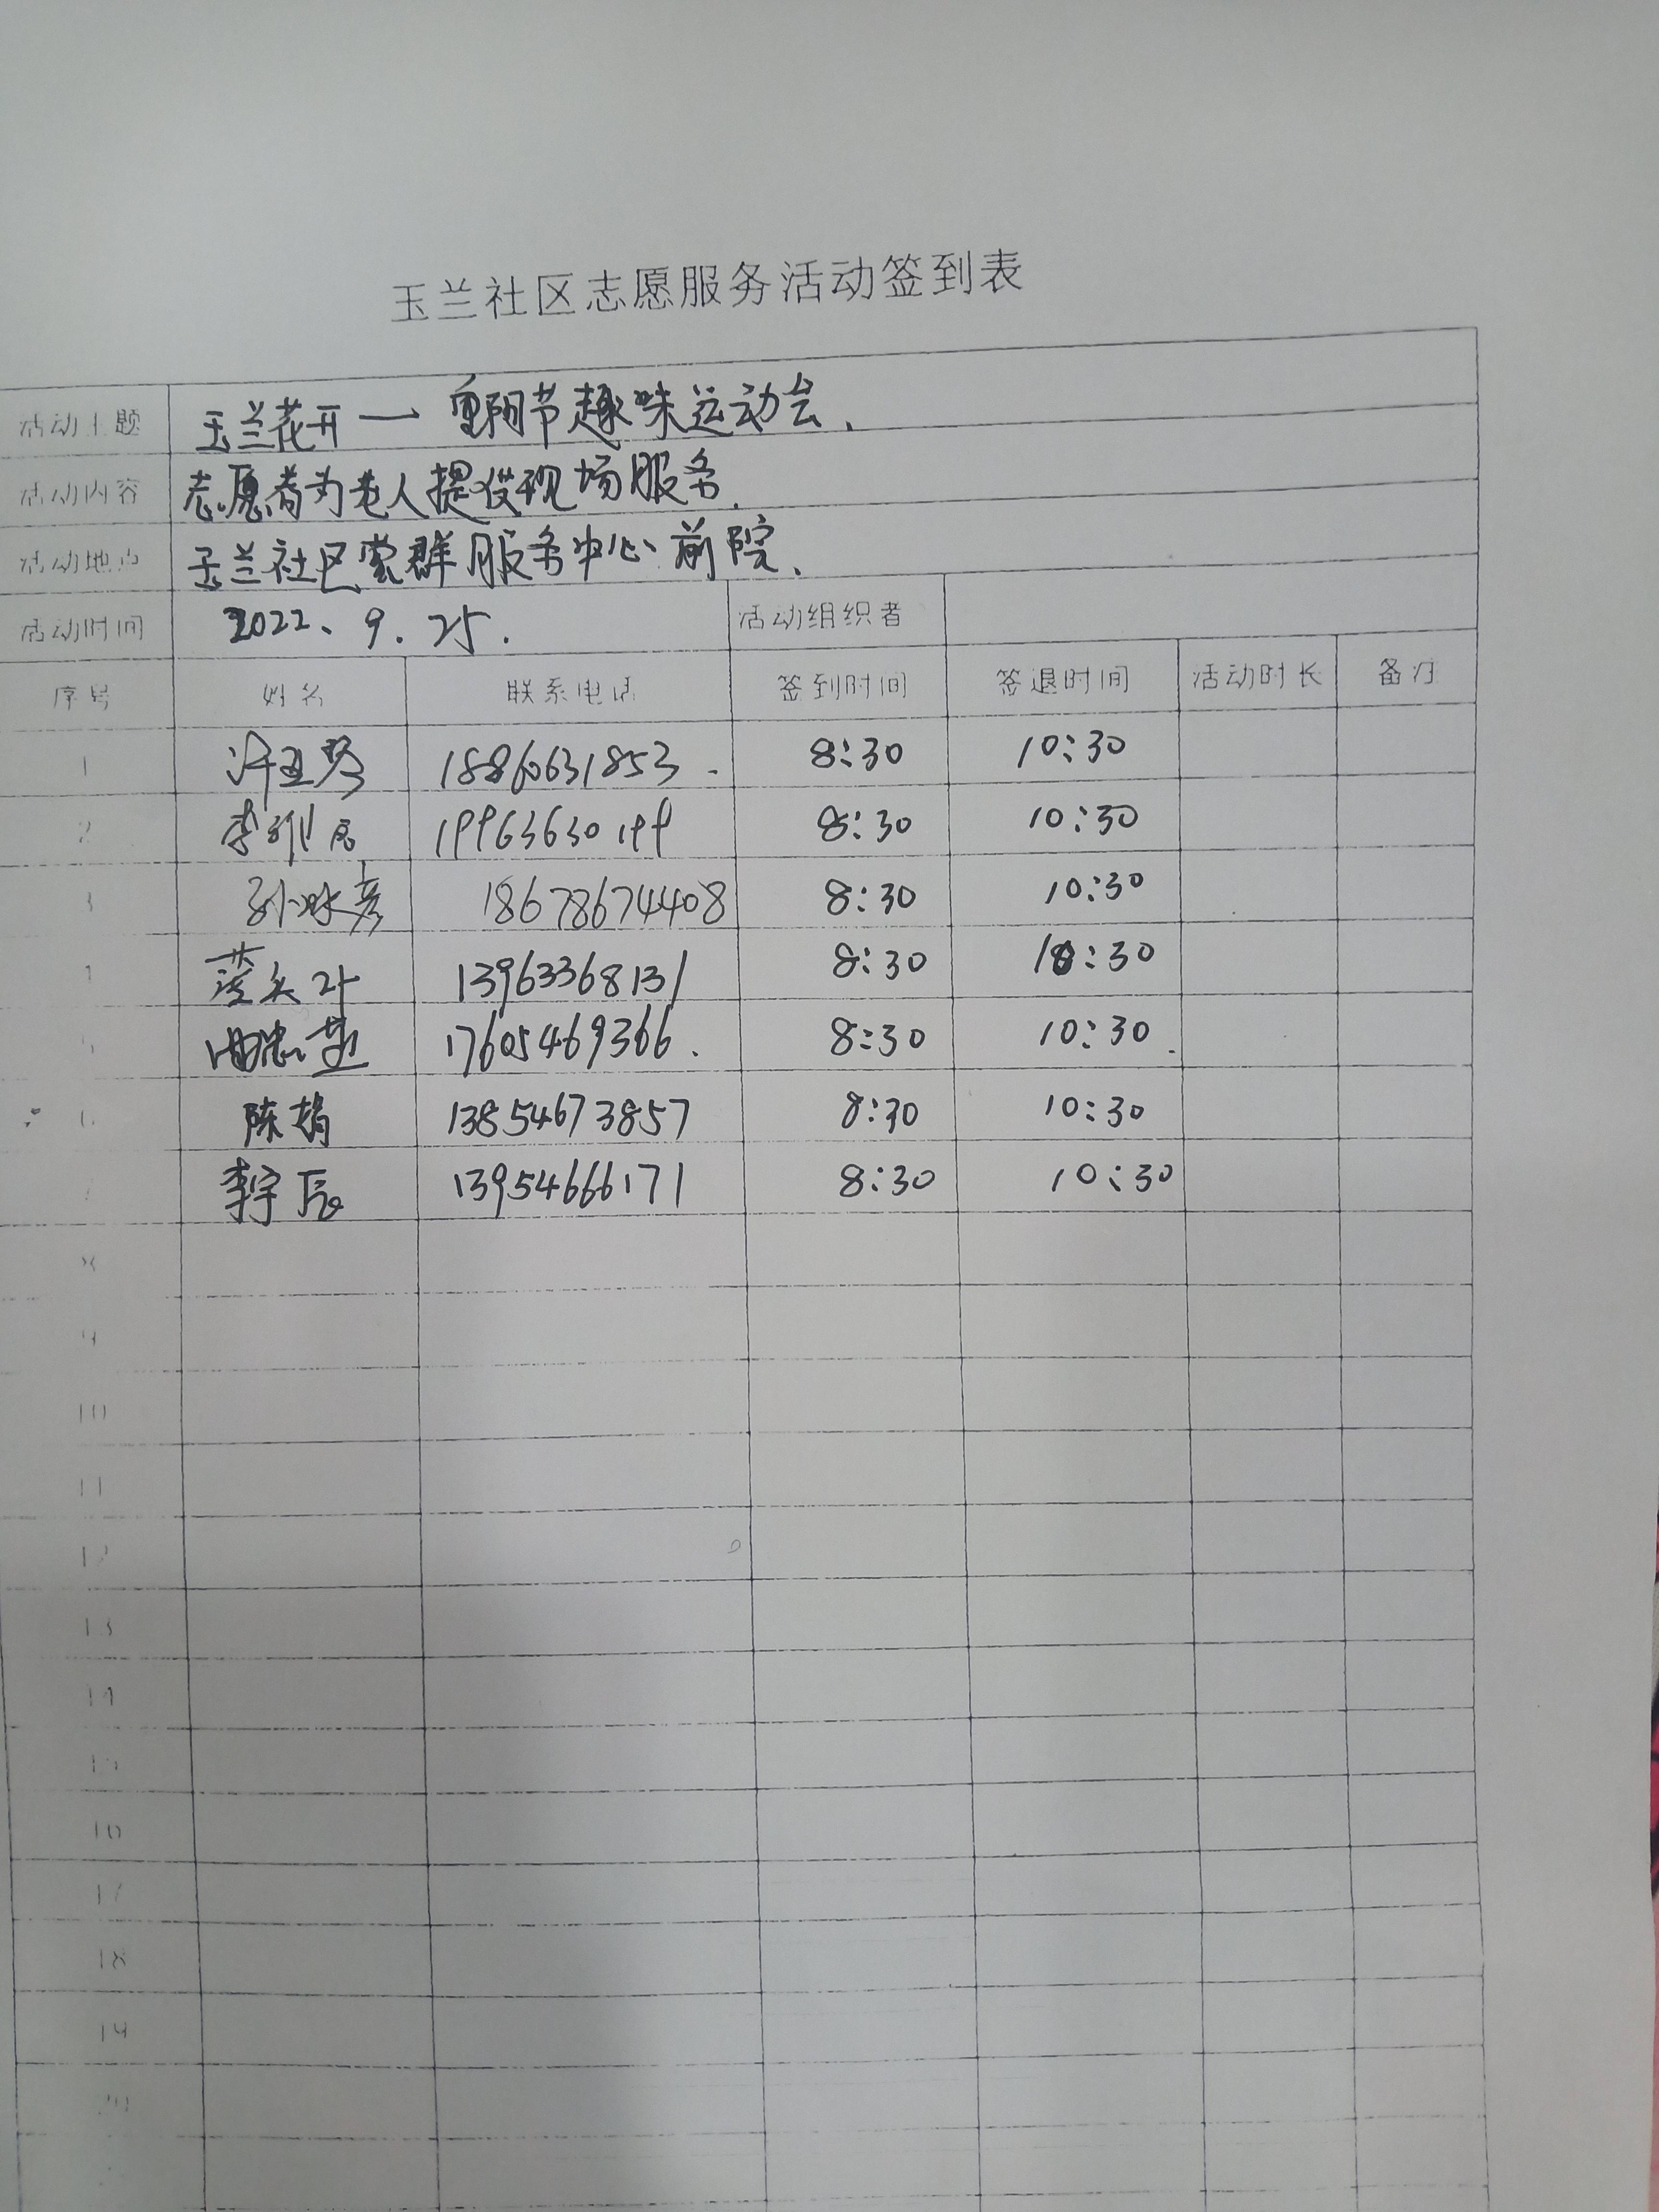 玉兰社区志愿服务活动签到表
活动主题 玉兰花开一重阳节趣味运动会.
活动内容 志愿者为老人提供现场服务.
活动地点 玉兰社区党群服务中心前院.
活动时间 2022、9.25. 活动组织者
序号 姓名 联系电话 签到时间 签退时间 活动时长 备注
1 许亚琴 18860631853. 8:30 10:30
2 19963630199 8:30 10:30
3 孙咏彦 18678674408 8:30 10:30
4 13963368131 8:30 10:30
5 17605469366. 8:30 10:30.
6 陈娟 13854673857 8:30 10:30
7 李宇辰 13954666171 8:30 10:30
8
9
10
11
12
13
14
15
16
17
18
19
20